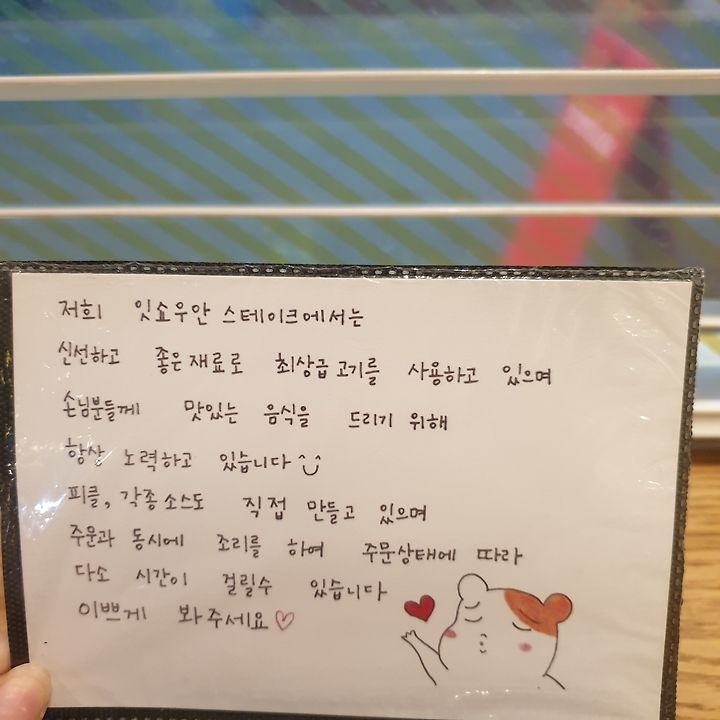 저희 잇쇼우안 스테이크에서는
신선하고 좋은 재료로 최상급 고기를 사용하고 있으며
손님분들께 맛있는 음식을 드리기 위해
항상 노력하고 있습니다
피클, 각종 소스도 직접 만들고 있으며
주문과 동시에 조리를 하여 주문상태에 따라
다소 시간이 걸릴수 있습니다
이쁘게 봐주세요♡